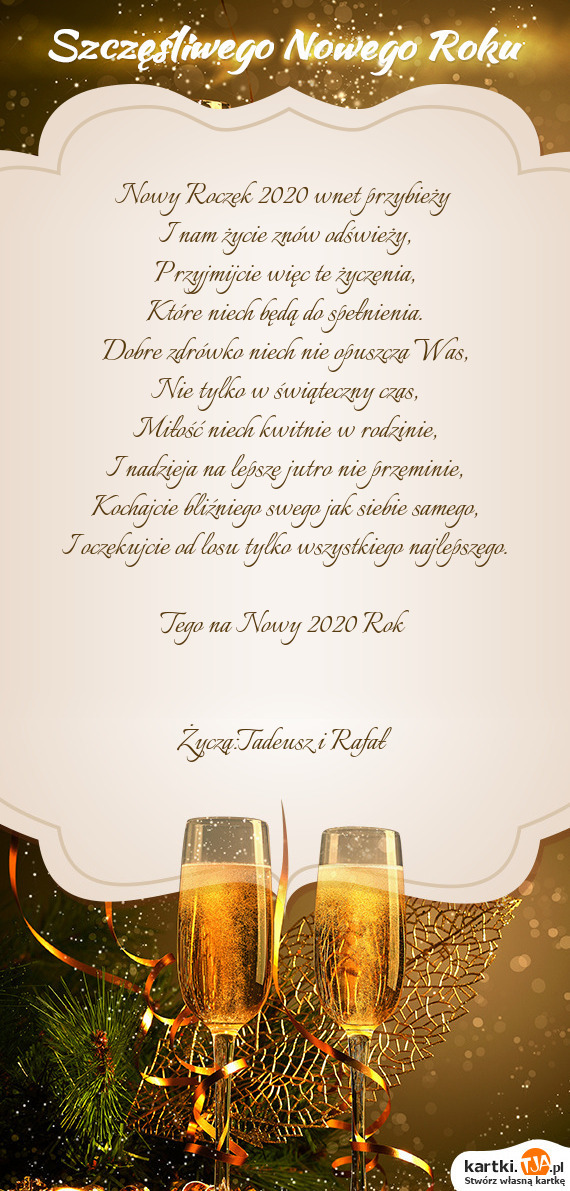 Szczęśliwego Nowego Roku
Nowy Roczek 2020 wnet przybieży
I nam życie znów odświeży,
Przyjmijcie więc te życzenia,
Które niech będą do spełnienia.
Dobre zdrówko niech nie opuszcza Was,
Nie tylko w świąteczny czas,
Miłość niech kwitnie w rodzinie,
I nadzieja na lepsze jutro nie przeminie,
Kochajcie bliźniego swego jak siebie samego,
I oczekujcie od losu tylko wszystkiego najlepszego.
Tego na Nowy 2020 Rok
Życzą:Tadeusz i Rafał
kartki.TJA.pl
Stwórz własną kartkę